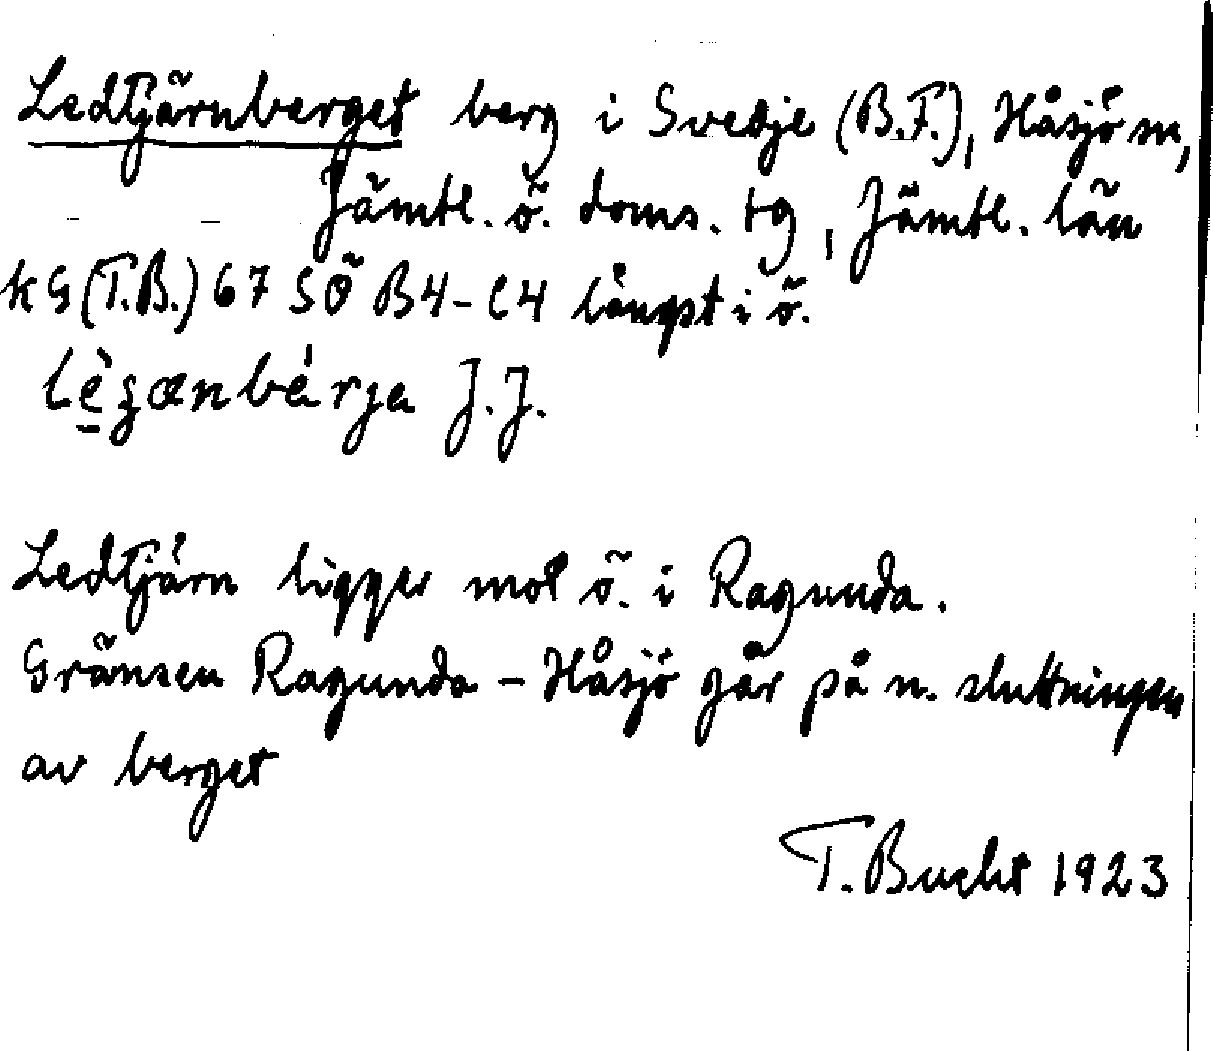 Ledtjärnberget berg i Svedje (B.F.), Håsjö sn,
Jämtl. ö. doms. tg, Jämtl. län
kG (T.B.) 67 SÖ B4-C4 längst i ö.
T.J.
Ledtjärn ligger mot ö. i Ragunda.
Gränsen Ragunda - Håsjö går på n. sluttningen
av berget
T. Bucht 1923